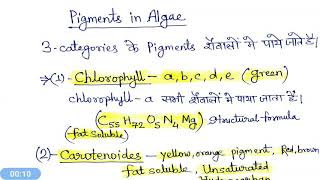 Pigments in Algae
3-categories के Pigments शैवालों में पाये जाते है।
→(1)- Chlorophyll - a,b,c,d,e (green)
chlorophyll-a सभी शैवालों मे पाया जाता है।
(C55 H72 O5 N4 Mg) Structural formula
-fat soluble)
(2)- Carotenoides - yellow, orange pigment, Red, brown
fat soluble, Unsaturated
00:10